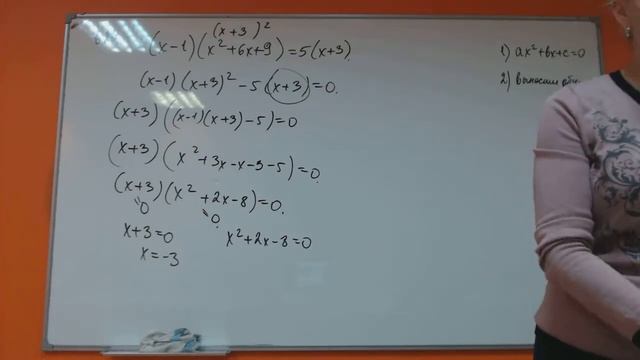 (x+3)²
(x-1)(x²+6x+9)=5(x+3)
(x-1)(x+3)²-5(x+3)=0.
(x+3)((x-1)(x+3)-5)=0
(x+3)(x²+3x-x-3-5)=0.
(x+3)(x²+2x-8)=0.
=0 =0.
x+3=0 x²+2x-8=0
x=-3
1) ax²+bx+c=0
2) выносим